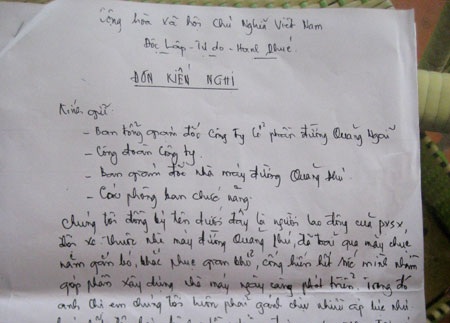 Cộng hòa xã hội Chủ Nghĩa Việt Nam
Độc Lập - Tự do - Hạnh Phúc.
ĐƠN KIẾN NGHỊ
Kính gửi:
- Ban tổng giám đốc Công Ty Cổ phần đường Quảng Ngãi
- Công đoàn Công ty.
- Ban giám đốc nhà máy đường Quảng Phú.
- Các phòng ban chức năng.
Chúng tôi đồng ký tên dưới đây là người lao động của pxsx
Đội xe thuộc nhà máy đường Quảng Phú, đã trải qua mấy chục
năm gắn bó, khắc phục gian khổ, cống hiến hết sức mình nhằm
góp phần xây dựng nhà máy ngày càng phát triển. Trong đó
anh chị em chúng tôi luôn phải gánh chịu nhiều áp lực như